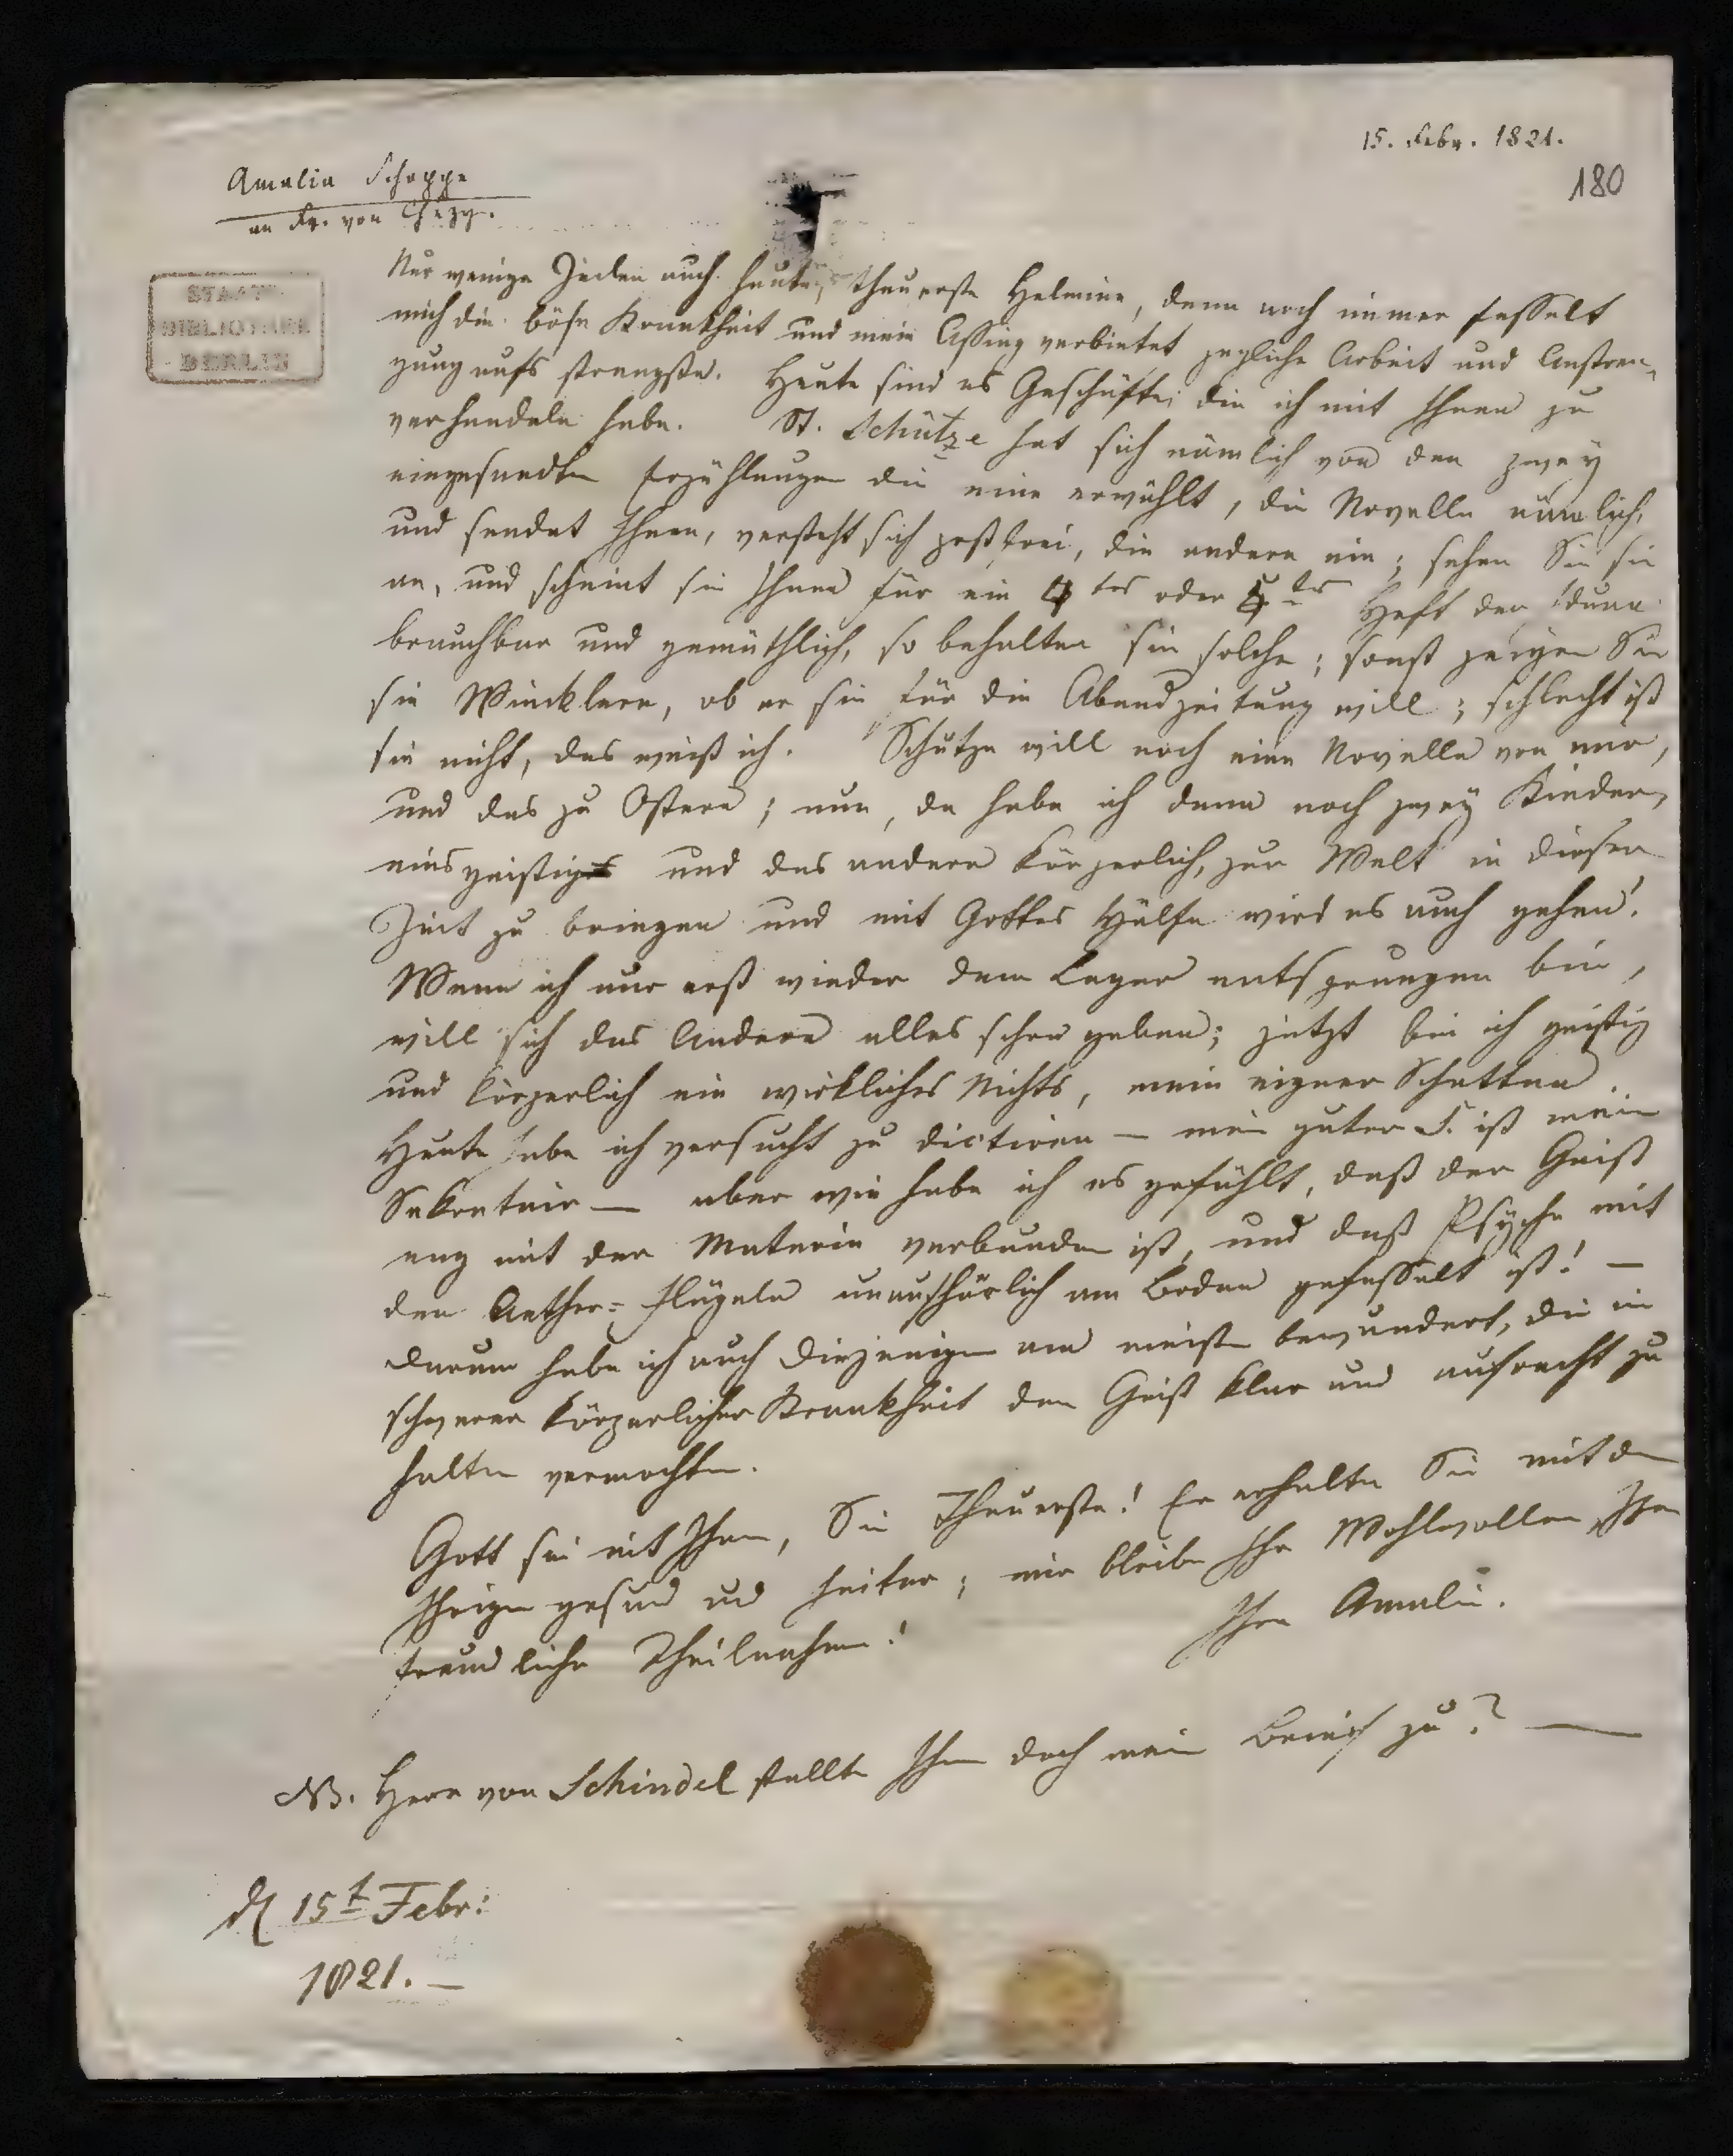 15. Febr. 1821.
180
Amalia Schoppe
an Fr. von Chezy.
STAATS-
BIBLIOTHEK
BERLIN
Nur wenige Zeilen auch heute, theuerste Helmine, denn noch immer fesselt
mich die böse Krankheit und mein Assing verbietet jegliche Arbeit und Anstren-
gung aufs strengste. Heute sind es Geschäfte, die ich mit Ihnen zu
verhandeln habe. St. Schütze hat sich nämlich von den zwey
eingesandten Erzählungen die eine erwählt, die Novelle nämlich,
und sendet Ihnen, versteht sich postfrei, die andere ein; sehen Sie sie
an, und scheint sie Ihnen für ein 4tes oder 5tes Heft der Iduna
brauchbar und gemüthlich, so behalten sie solche; sonst zeigen Sie
sie Wincklern, ob er sie für die Abendzeitung will; schlecht ist
sie nicht, das weiß ich. Schütze will noch eine Novelle von mir,
und das zu Ostern; nun, da habe ich denn noch zwey Kinder,
eins geistig und das andere körperlich, zur Welt in dieser
Zeit zu bringen und mit Gottes Hülfe wird es auch gehen!
Wenn ich nur erst wieder dem Lager entsprungen bin,
will sich das Andere alles schon geben; jetzt bin ich geistig
und körperlich ein wirkliches Nichts, mein eigner Schatten.
Heute habe ich versucht zu dictiren — mein guter S. ist mein
Sekretair — aber wie habe ich es gefühlt, daß der Geist
eng mit der Materie verbunden ist, und daß Psyche mit
den Aether-Flügeln unaufhörlich am Boden gefesselt ist! —
Darum habe ich auch diejenigen am meisten bewundert, die in
schwerer körperlicher Krankheit den Geist klar und aufrecht zu
halten vermochten.
Gott sei mit Ihnen, Sie Theuerste! Er erhalte Sie mit den
Ihrigen gesund und heiter; mir bleibe Ihr Wohlwollen, Ihre
freundliche Theilnahme!
Ihre Amalie.
NB. Herr von Schindel stellte Ihnen doch mein Brief zu? —
d 15t Febr:
1821. —